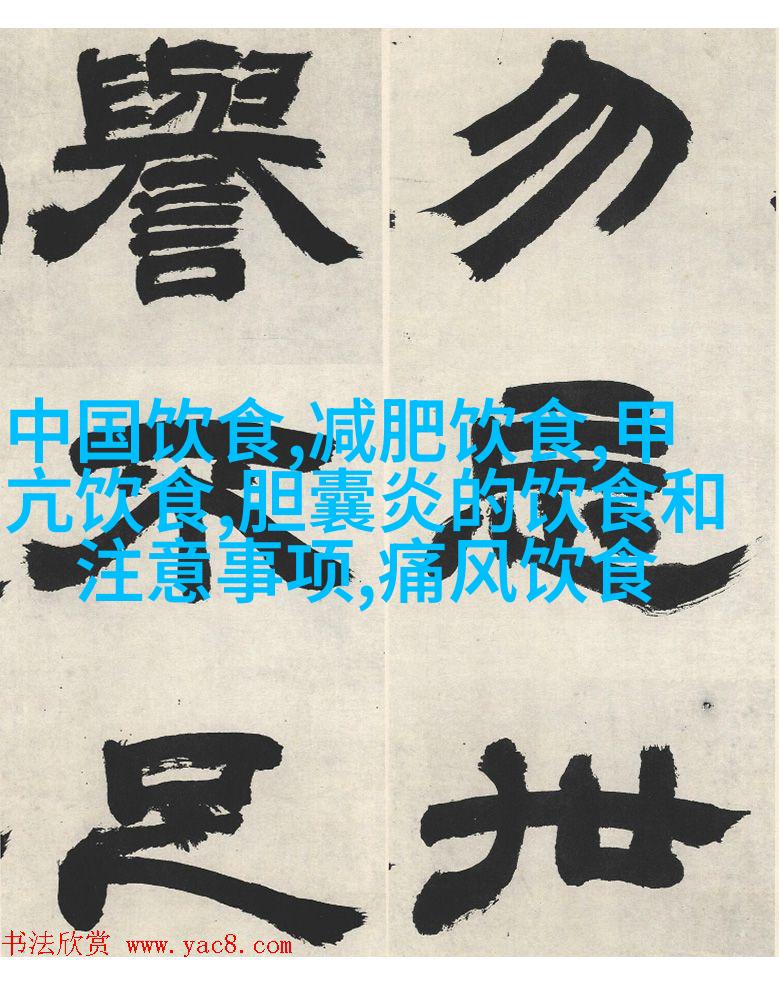 勿
世
譽不足
中国饮食,减肥饮食,甲
亢饮食,胆囊炎的饮食和
注意事项,痛风饮食
书法欣赏 www.yac8.com